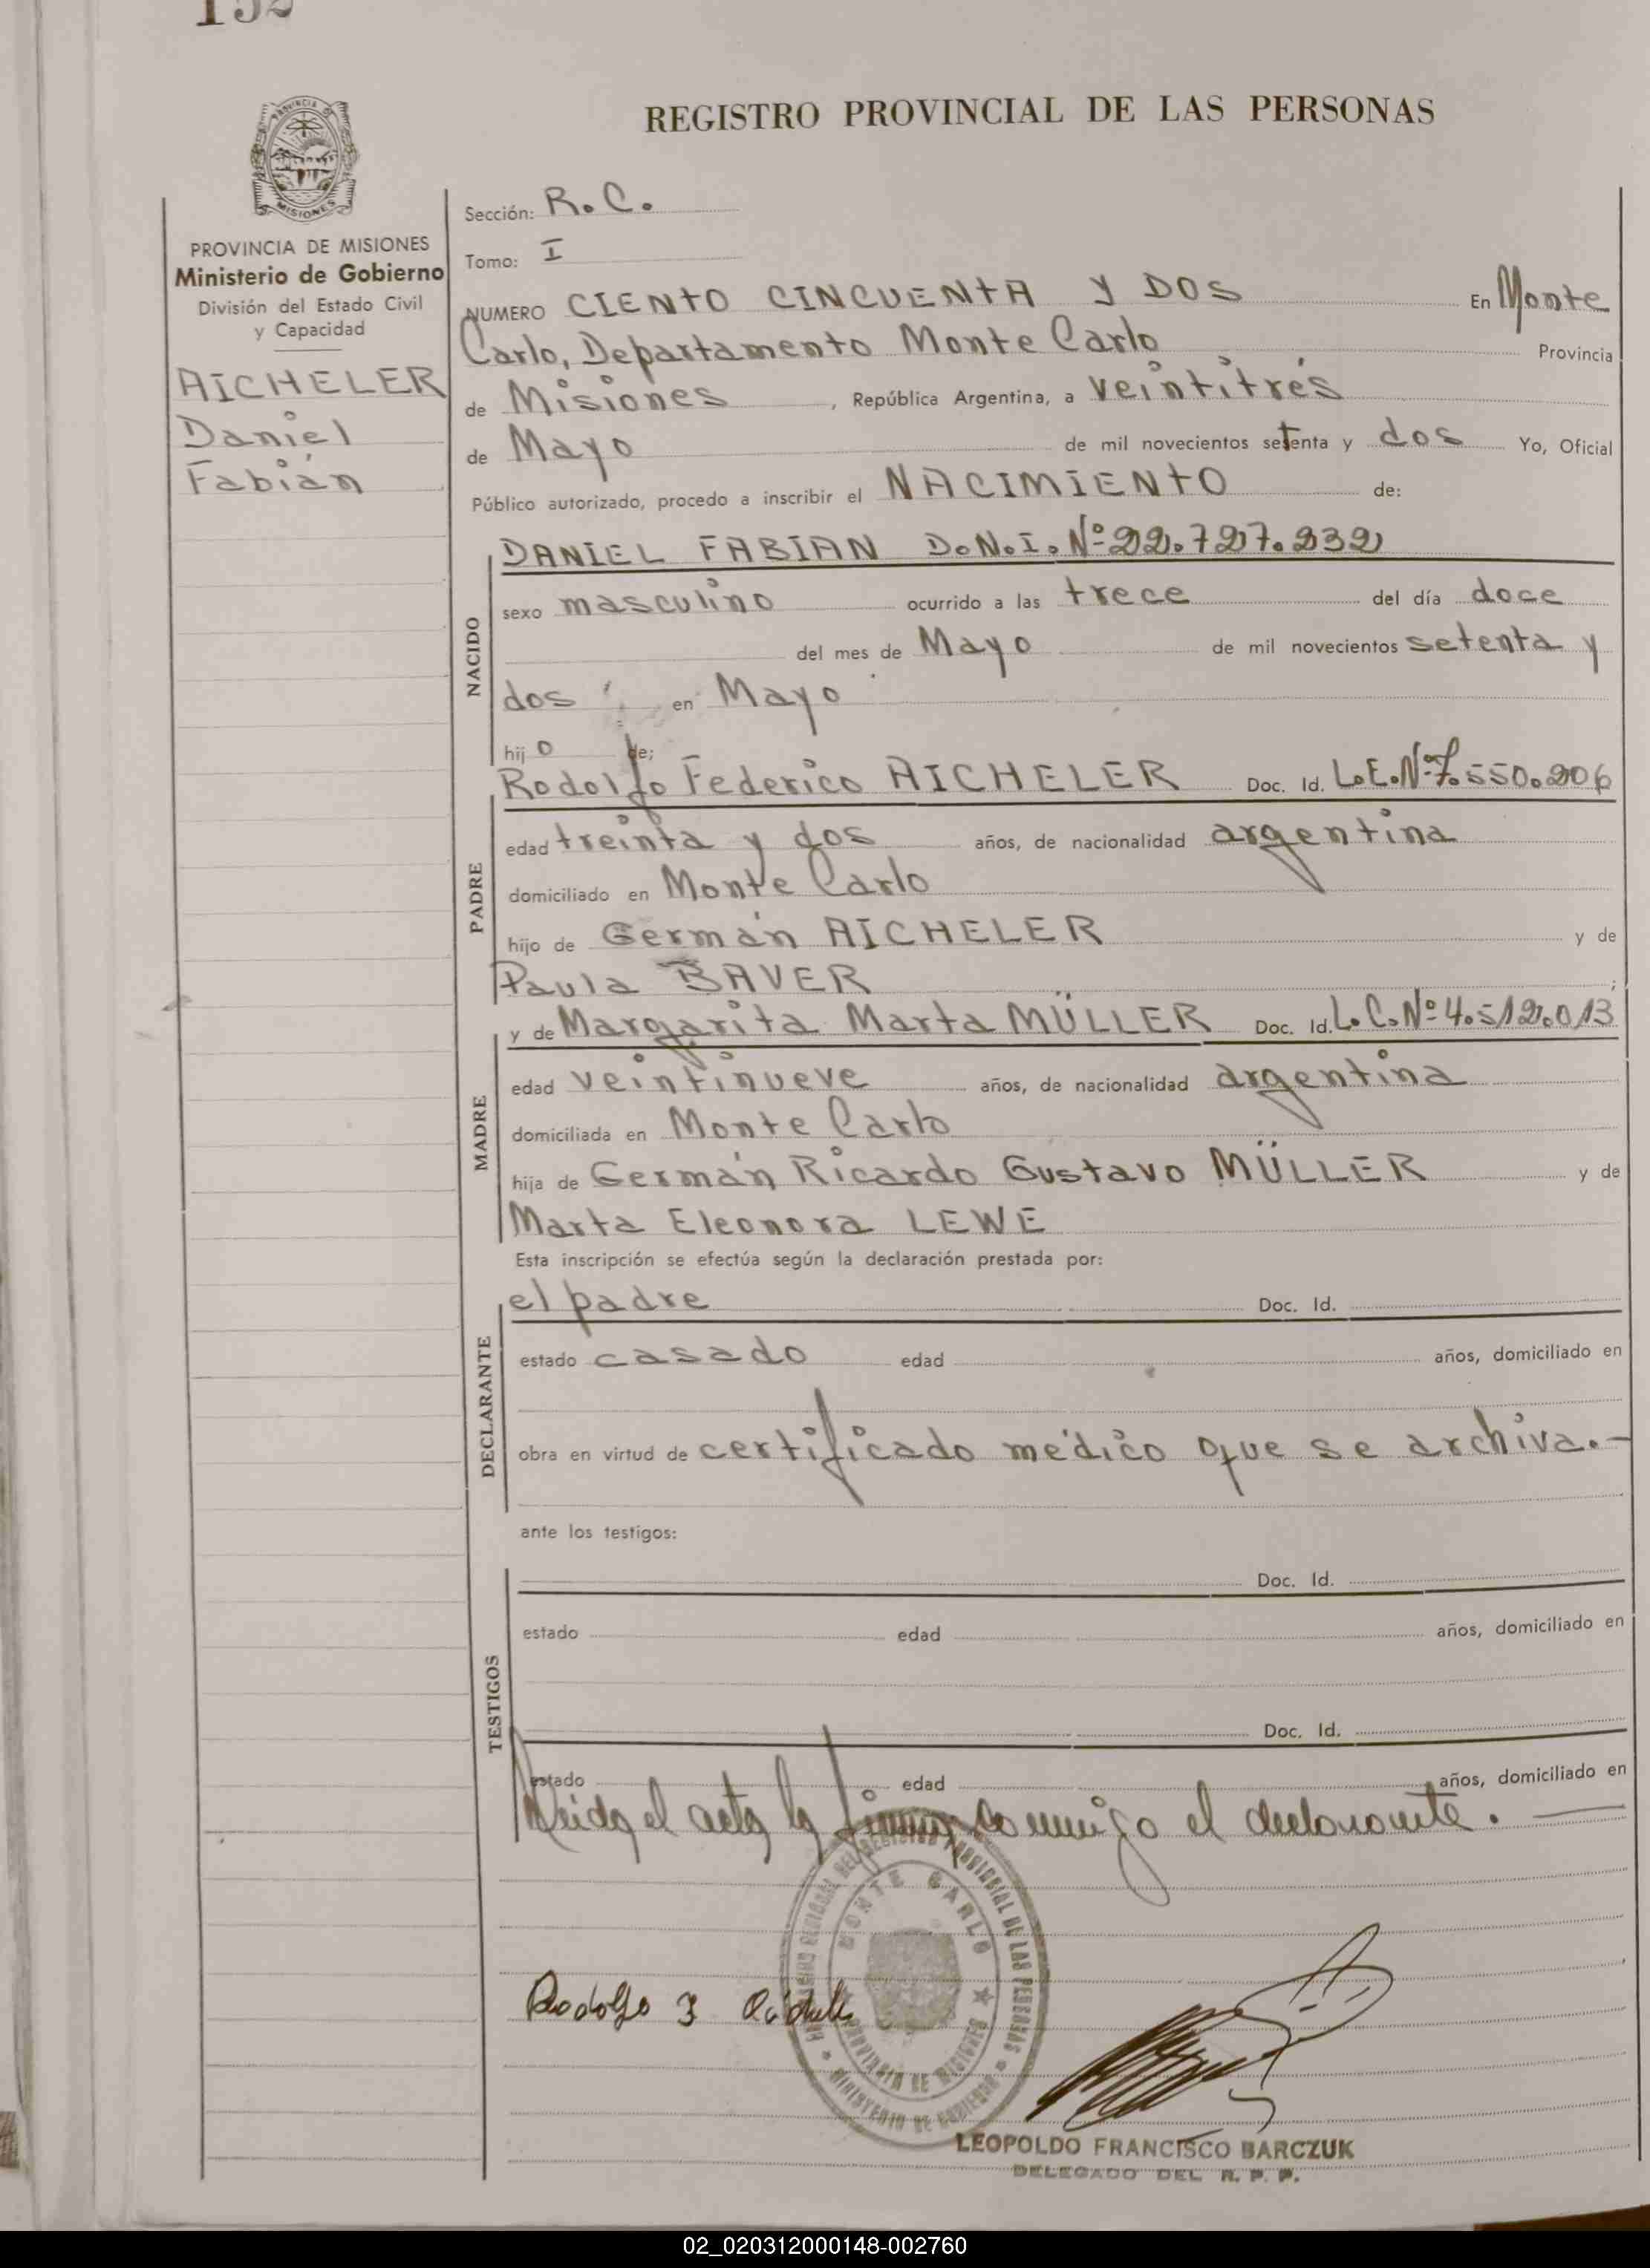 152
REGISTRO PROVINCIAL DE LAS PERSONAS
PROVINCIA DE MISIONES
Ministerio de Gobierno
División del Estado Civil
y Capacidad
AICHELER
Daniel
Fabián
Sección: R.C.
Tomo: I
NUMERO CIENTO CINCUENTA Y DOS En Monte
Carlo, Departamento Monte Carlo Provincia
de Misiones, República Argentina, a veintitrés
de Mayo de mil novecientos setenta y dos Yo, Oficial
Público autorizado, procedo a inscribir el NACIMIENTO de:
NACIDO
DANIEL FABIAN D.N.I. Nº 22.727.232
sexo masculino ocurrido a las trece del día doce
del mes de Mayo de mil novecientos setenta y
dos en Mayo
hijo de;
PADRE
Rodolfo Federico AICHELER Doc. Id. L.E.Nº 7.550.206
edad treinta y dos años, de nacionalidad argentina
domiciliado en Monte Carlo
hijo de Germán AICHELER y de
Paula BAVER;
MADRE
y de Margarita Marta MÜLLER Doc. Id. L.C.Nº 4.512.013
edad veintinueve años, de nacionalidad argentina
domiciliada en Monte Carlo
hija de Germán Ricardo Gustavo MÜLLER y de
Marta Eleonora LEWE
Esta inscripción se efectúa según la declaración prestada por:
DECLARANTE
el padre Doc. Id.
estado casado edad años, domiciliado en
obra en virtud de certificado médico que se archiva.-
ante los testigos:
TESTIGOS
Doc. Id.
estado edad años, domiciliado en
Doc. Id.
estado edad años, domiciliado en
Leída el acta la firma conmigo el declarante.
MONTE CARLO
PROVINCIA DE MISIONES
MINISTERIO DE GOBIERNO
REGISTRO PROVINCIAL DE LAS PERSONAS
Rodolfo F Aicheler
LEOPOLDO FRANCISCO BARCZUK
DELEGADO DEL R. P. P.
02_020312000148-002760